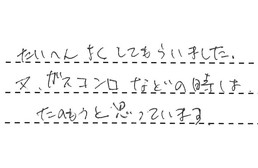 たいへん よくしてもらいました.
又、ガスコンロ などの時は、
たのもうと思っています